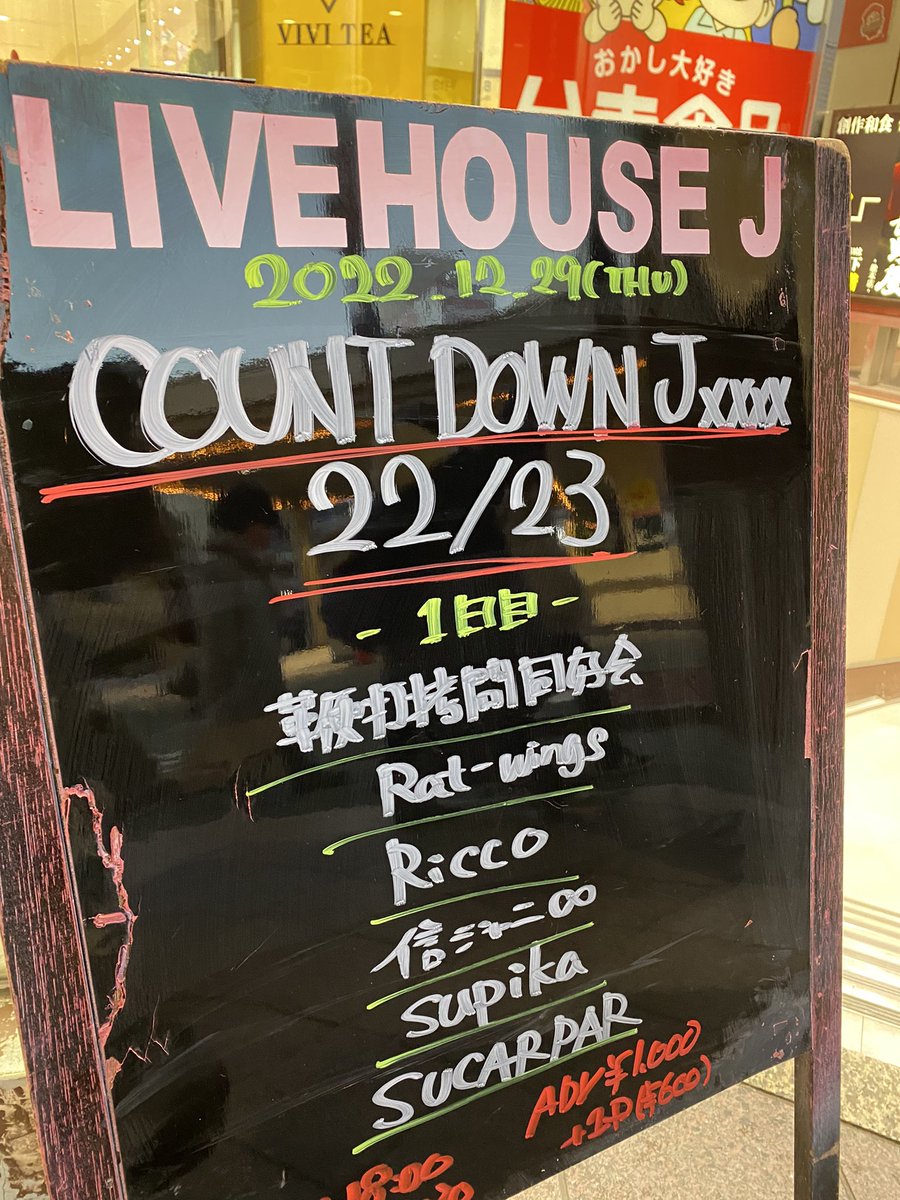 VIVI TEA
おかし大好き
創作和食
LIVEHOUSE J
2022.12.29(THU)
COUNT DOWN Jxxxx
22/23
- 1日目 -
鞭打拷問同好会
Rat-wings
Ricco
信ジャニ∞
supika
SUCARPAR
ADV ¥1,000
+1D(¥600)
18:00